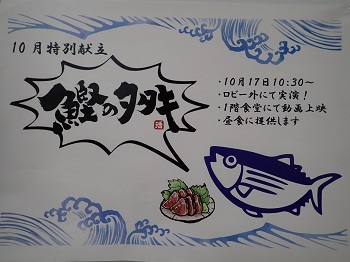 10月特別献立
鰹のタタキ
・10月17日10:30～
・ロビー外にて実演！
・1階食堂にて動画上映
・昼食に提供します